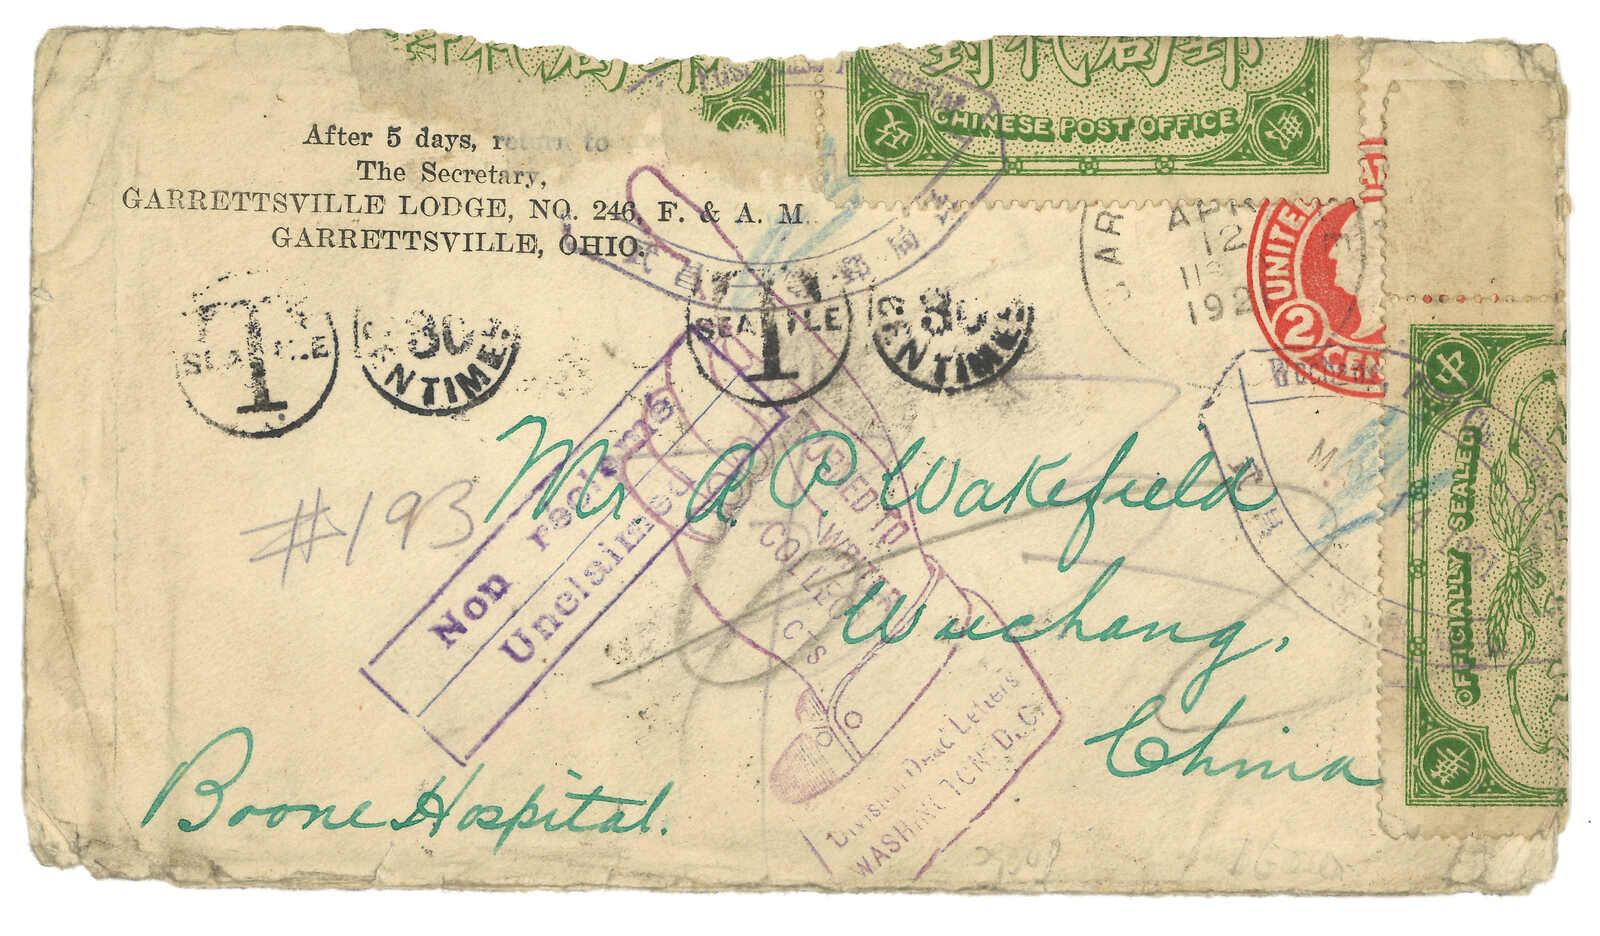 After 5 days, return to
The Secretary,
GARRETTSVILLE LODGE, NO. 246, F. & A. M.
GARRETTSVILLE, OHIO.
CHINESE POST OFFICE
APR
12
192
UNITE
2
CEN
T
SEATTLE
30
CENTIMES
T
SEATTLE
30
CENTIMES
#193
Non reclame
Unclaimed
WRITER
COLLECT
CTS
Division Dead Letters
WASHINGTON, D.C.
Mr. A. P. Wakefield
Wuchang,
China
Boone Hospital.
OFFICIALLY SEALED